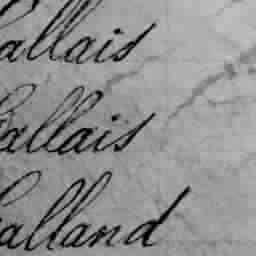 Gallais
Gallais
Galland